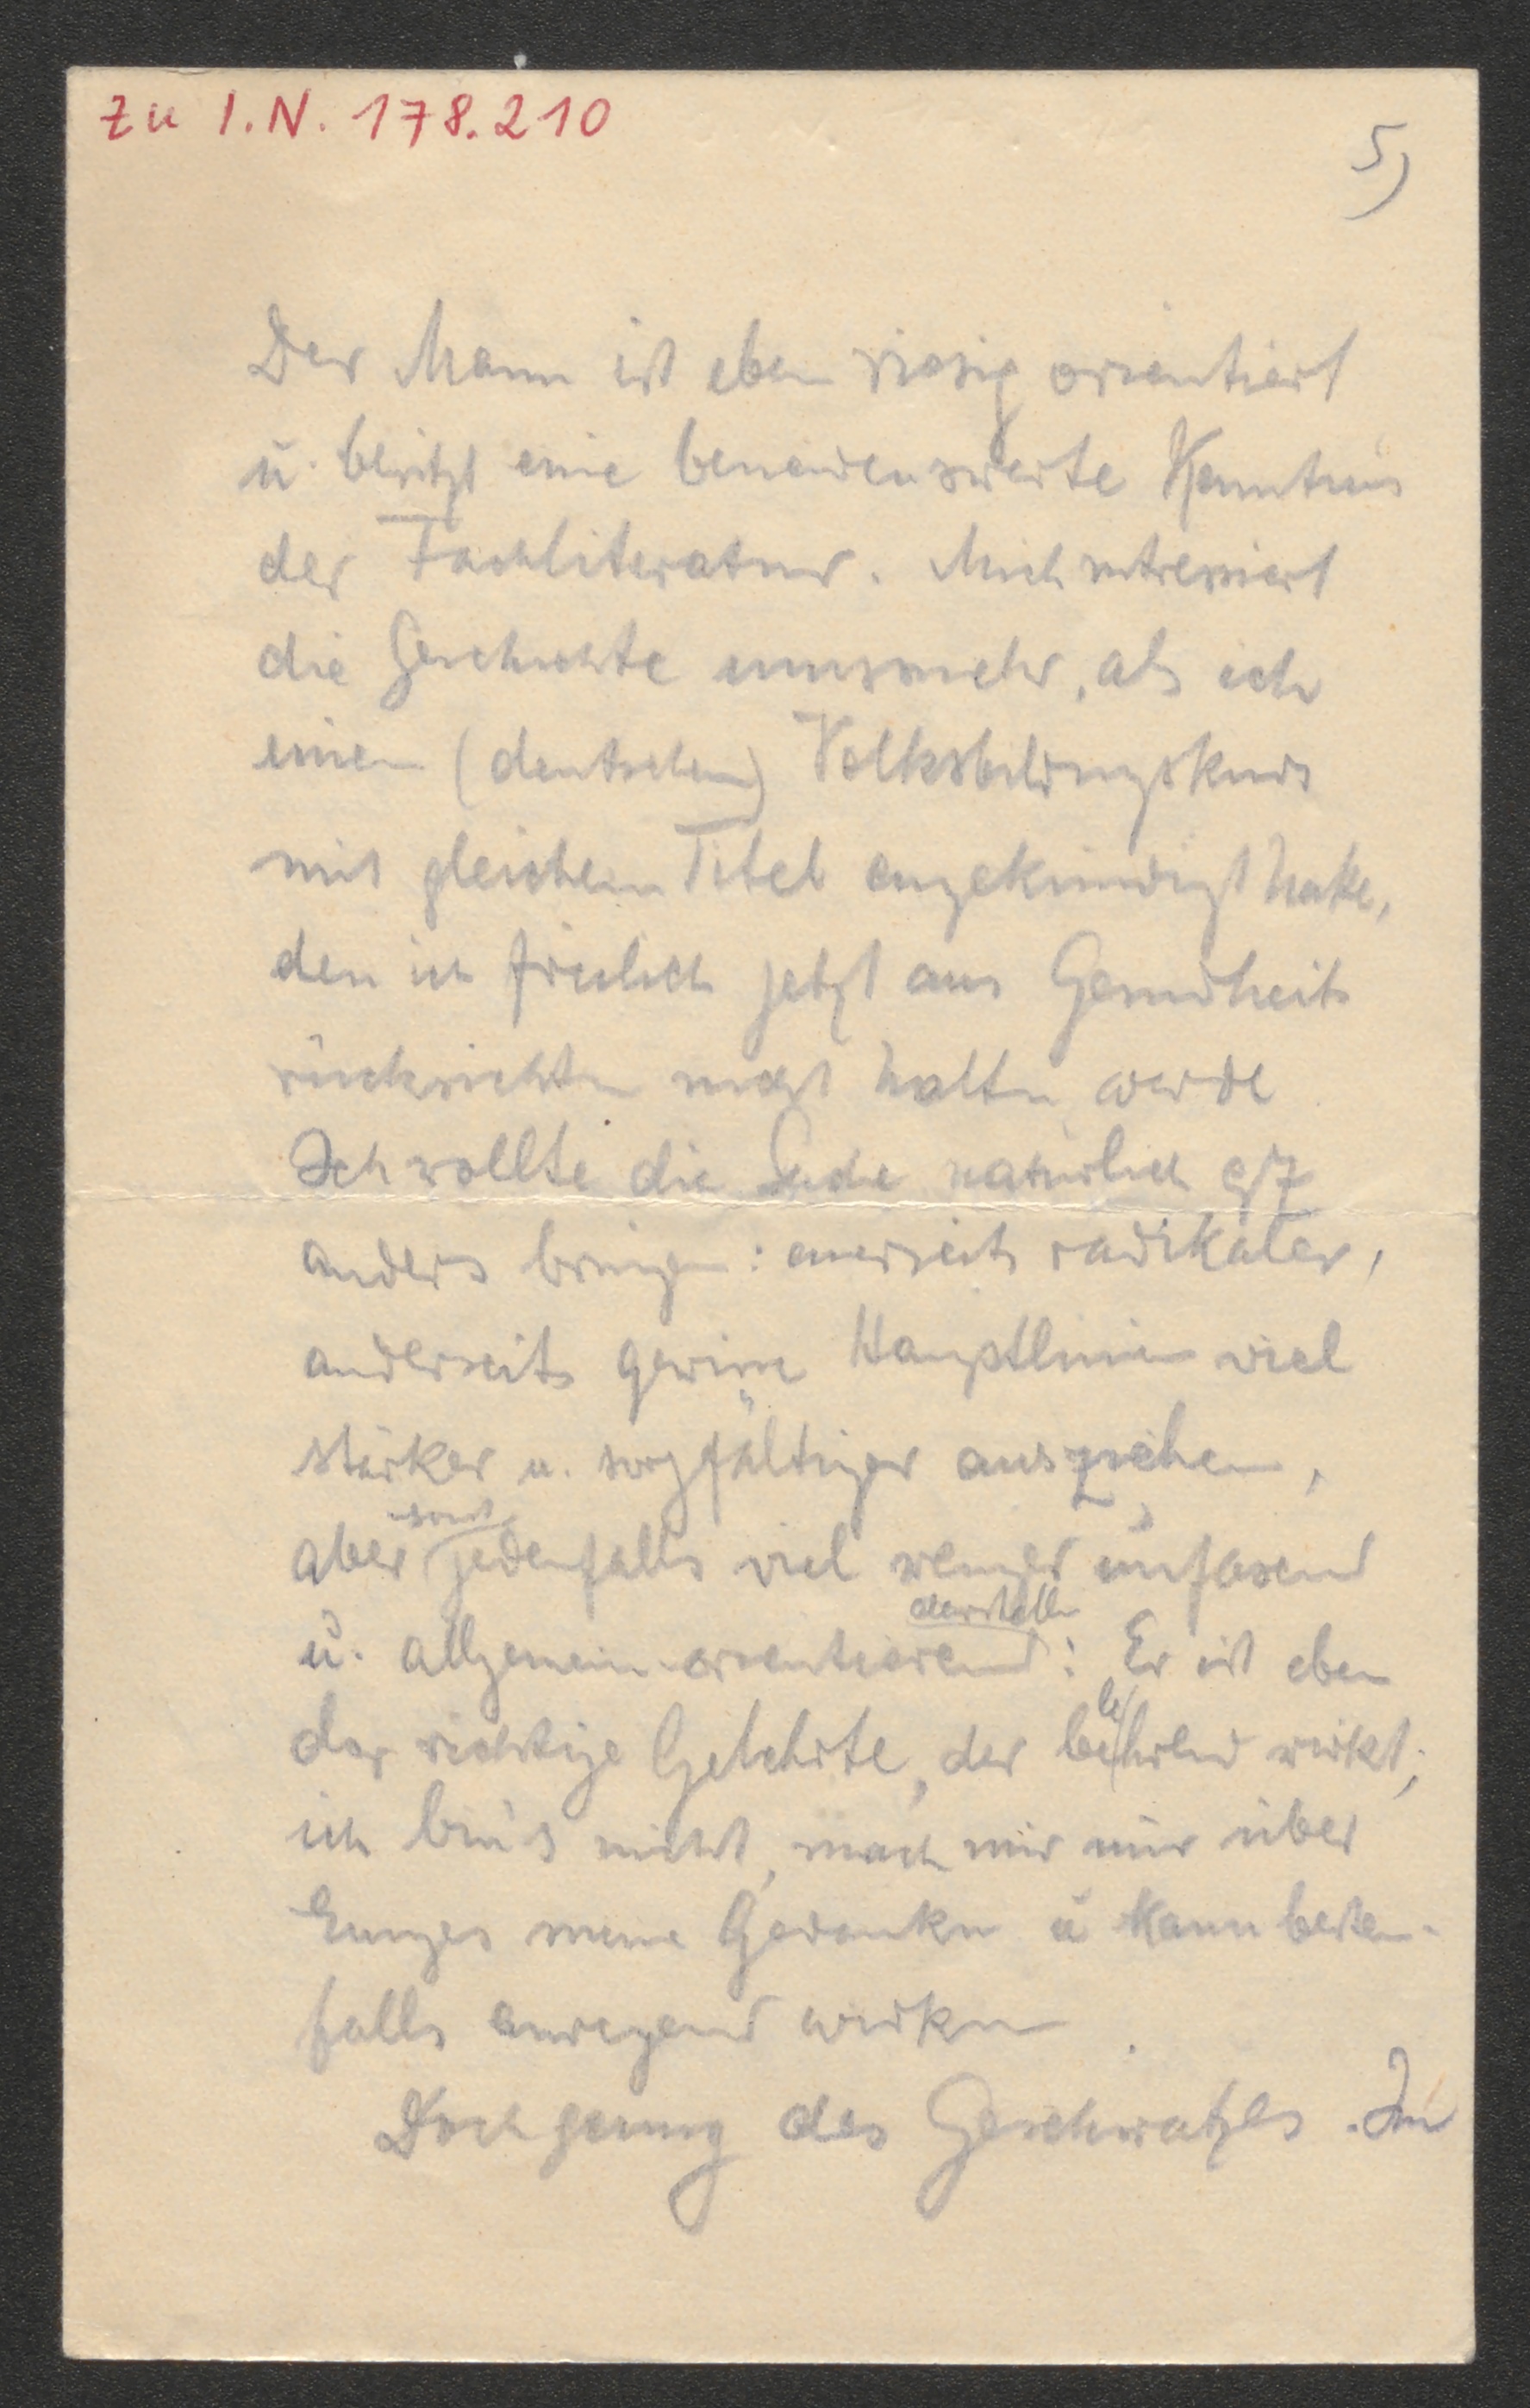 zu I.N. 178.210
5)
Der Mann ist eben riesig orientiert
u. besitzt eine beneidenswerte Kenntnis
der Fachliteratur. Mich interessiert
die Geschichte umsomehr, als ich
einen (deutschen) Volksbildungskurs
mit gleichem Titel angekündigt habe,
den ich freilich jetzt aus Gesundheits
rücksichten nicht halten werde
Ich wollte die Sache natürlich gz
anders bringen: einerseits radikaler,
anderseits gewisse Hauptlinien viel
stärker u. sorgfältiger ausziehen,
sonst
aber jedenfalls viel weniger umfassend
darstellen
u. allgemein-orientierend: Er ist eben
le
der richtige Gelehrte, der behrend wirkt;
ich bin's nicht, mach mir nur über
Einiges meine Gedanken u kann besten-
falls anregend wirken.
Doch genug des Geschwätzes. Im